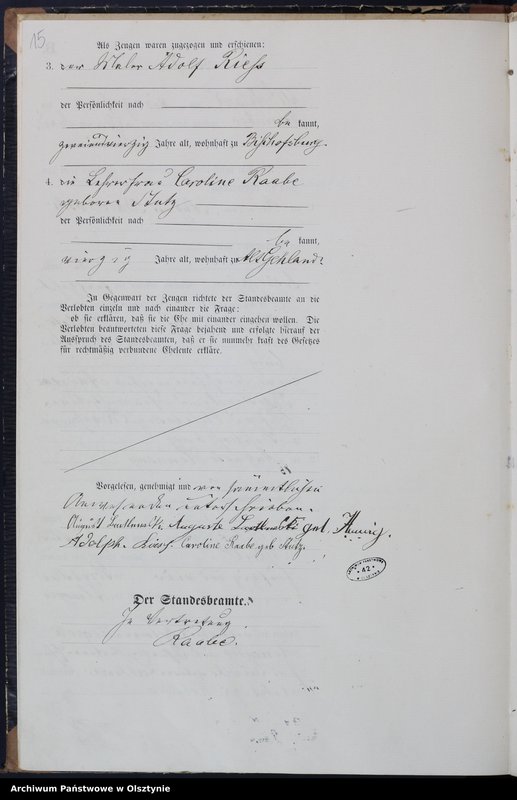 15
Als Zeugen waren zugezogen und erschienen:
3. der Maler Adolf Riess
der Persönlichkeit nach
be kannt,
zweiundvierzig Jahre alt, wohnhaft zu Bischofsburg.
4. die Lehrerfrau Caroline Raabe
geborene Stutz
der Persönlichkeit nach
be kannt,
vierzig Jahre alt, wohnhaft zu Alt
In Gegenwart der Zeugen richtete der Standesbeamte an die
Verlobten einzeln und nach einander die Frage:
ob sie erklären, daß sie die Ehe mit einander eingehen wollen. Die
Verlobten beantworteten diese Frage bejahend und erfolgte hierauf der
Ausspruch des Standesbeamten, daß er sie nunmehr kraft des Gesetzes
für rechtmäßig verbundene Eheleute erkläre.
Vorgelesen, genehmigt und von sämmtlichen
Anwesenden unterschrieben.
August Auguste geb.
Adolph Caroline Raabe geb. Stutz.
42
Der Standesbeamte.
In Vertretung
Raabe.
Archiwum Państwowe w Olsztynie